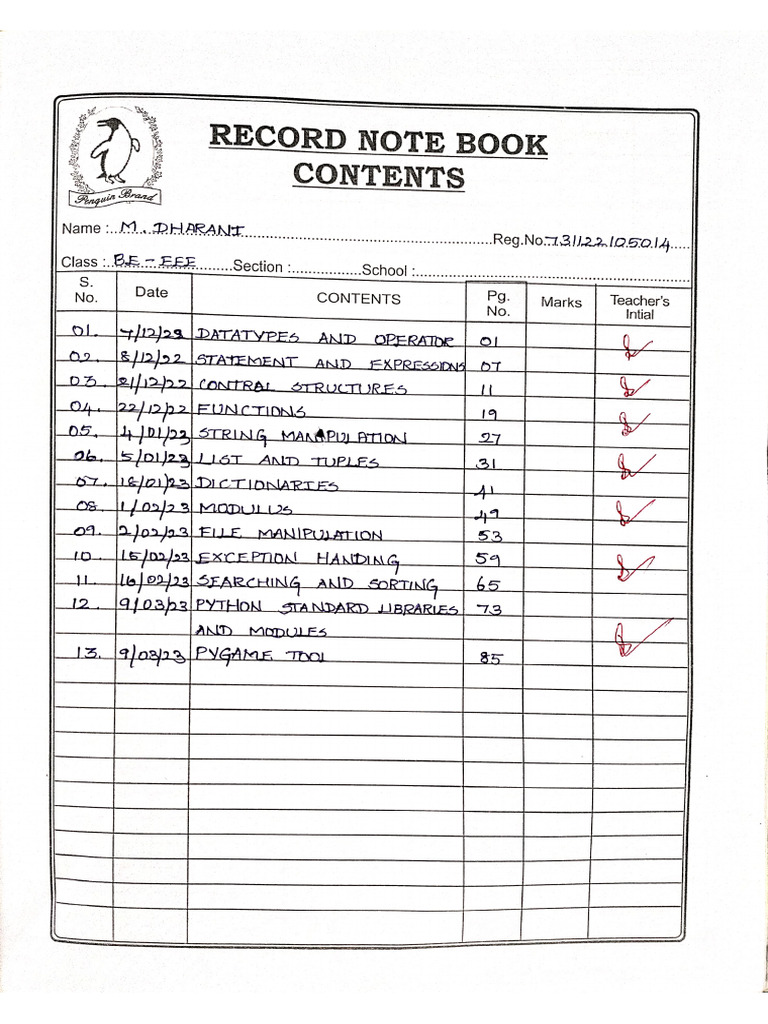 Penguin Brand
RECORD NOTE BOOK
CONTENTS
Name : M. DHARANI Reg.No. 731122105014
Class : BE - EEE Section : School :
S. No. Date CONTENTS Pg. No. Marks Teacher's Intial
01. 7/12/22 DATATYPES AND OPERATOR 01
02. 8/12/22 STATEMENT AND EXPRESSIONS 07
03. 21/12/22 CONTRAL STRUCTURES 11
04. 22/12/22 FUNCTIONS 19
05. 4/01/23 STRING MANIPULATION 27
06. 5/01/23 LIST AND TUPLES 31
07. 18/01/23 DICTIONARIES 41
08. 1/02/23 MODULUS 49
09. 2/02/23 FILE MANIPULATION 53
10. 15/02/23 EXCEPTION HANDING 59
11. 16/02/23 SEARCHING AND SORTING 65
12. 9/03/23 PYTHON STANDARD LIBRARIES 73
AND MODULES
13. 9/03/23 PYGAME TOOL 85